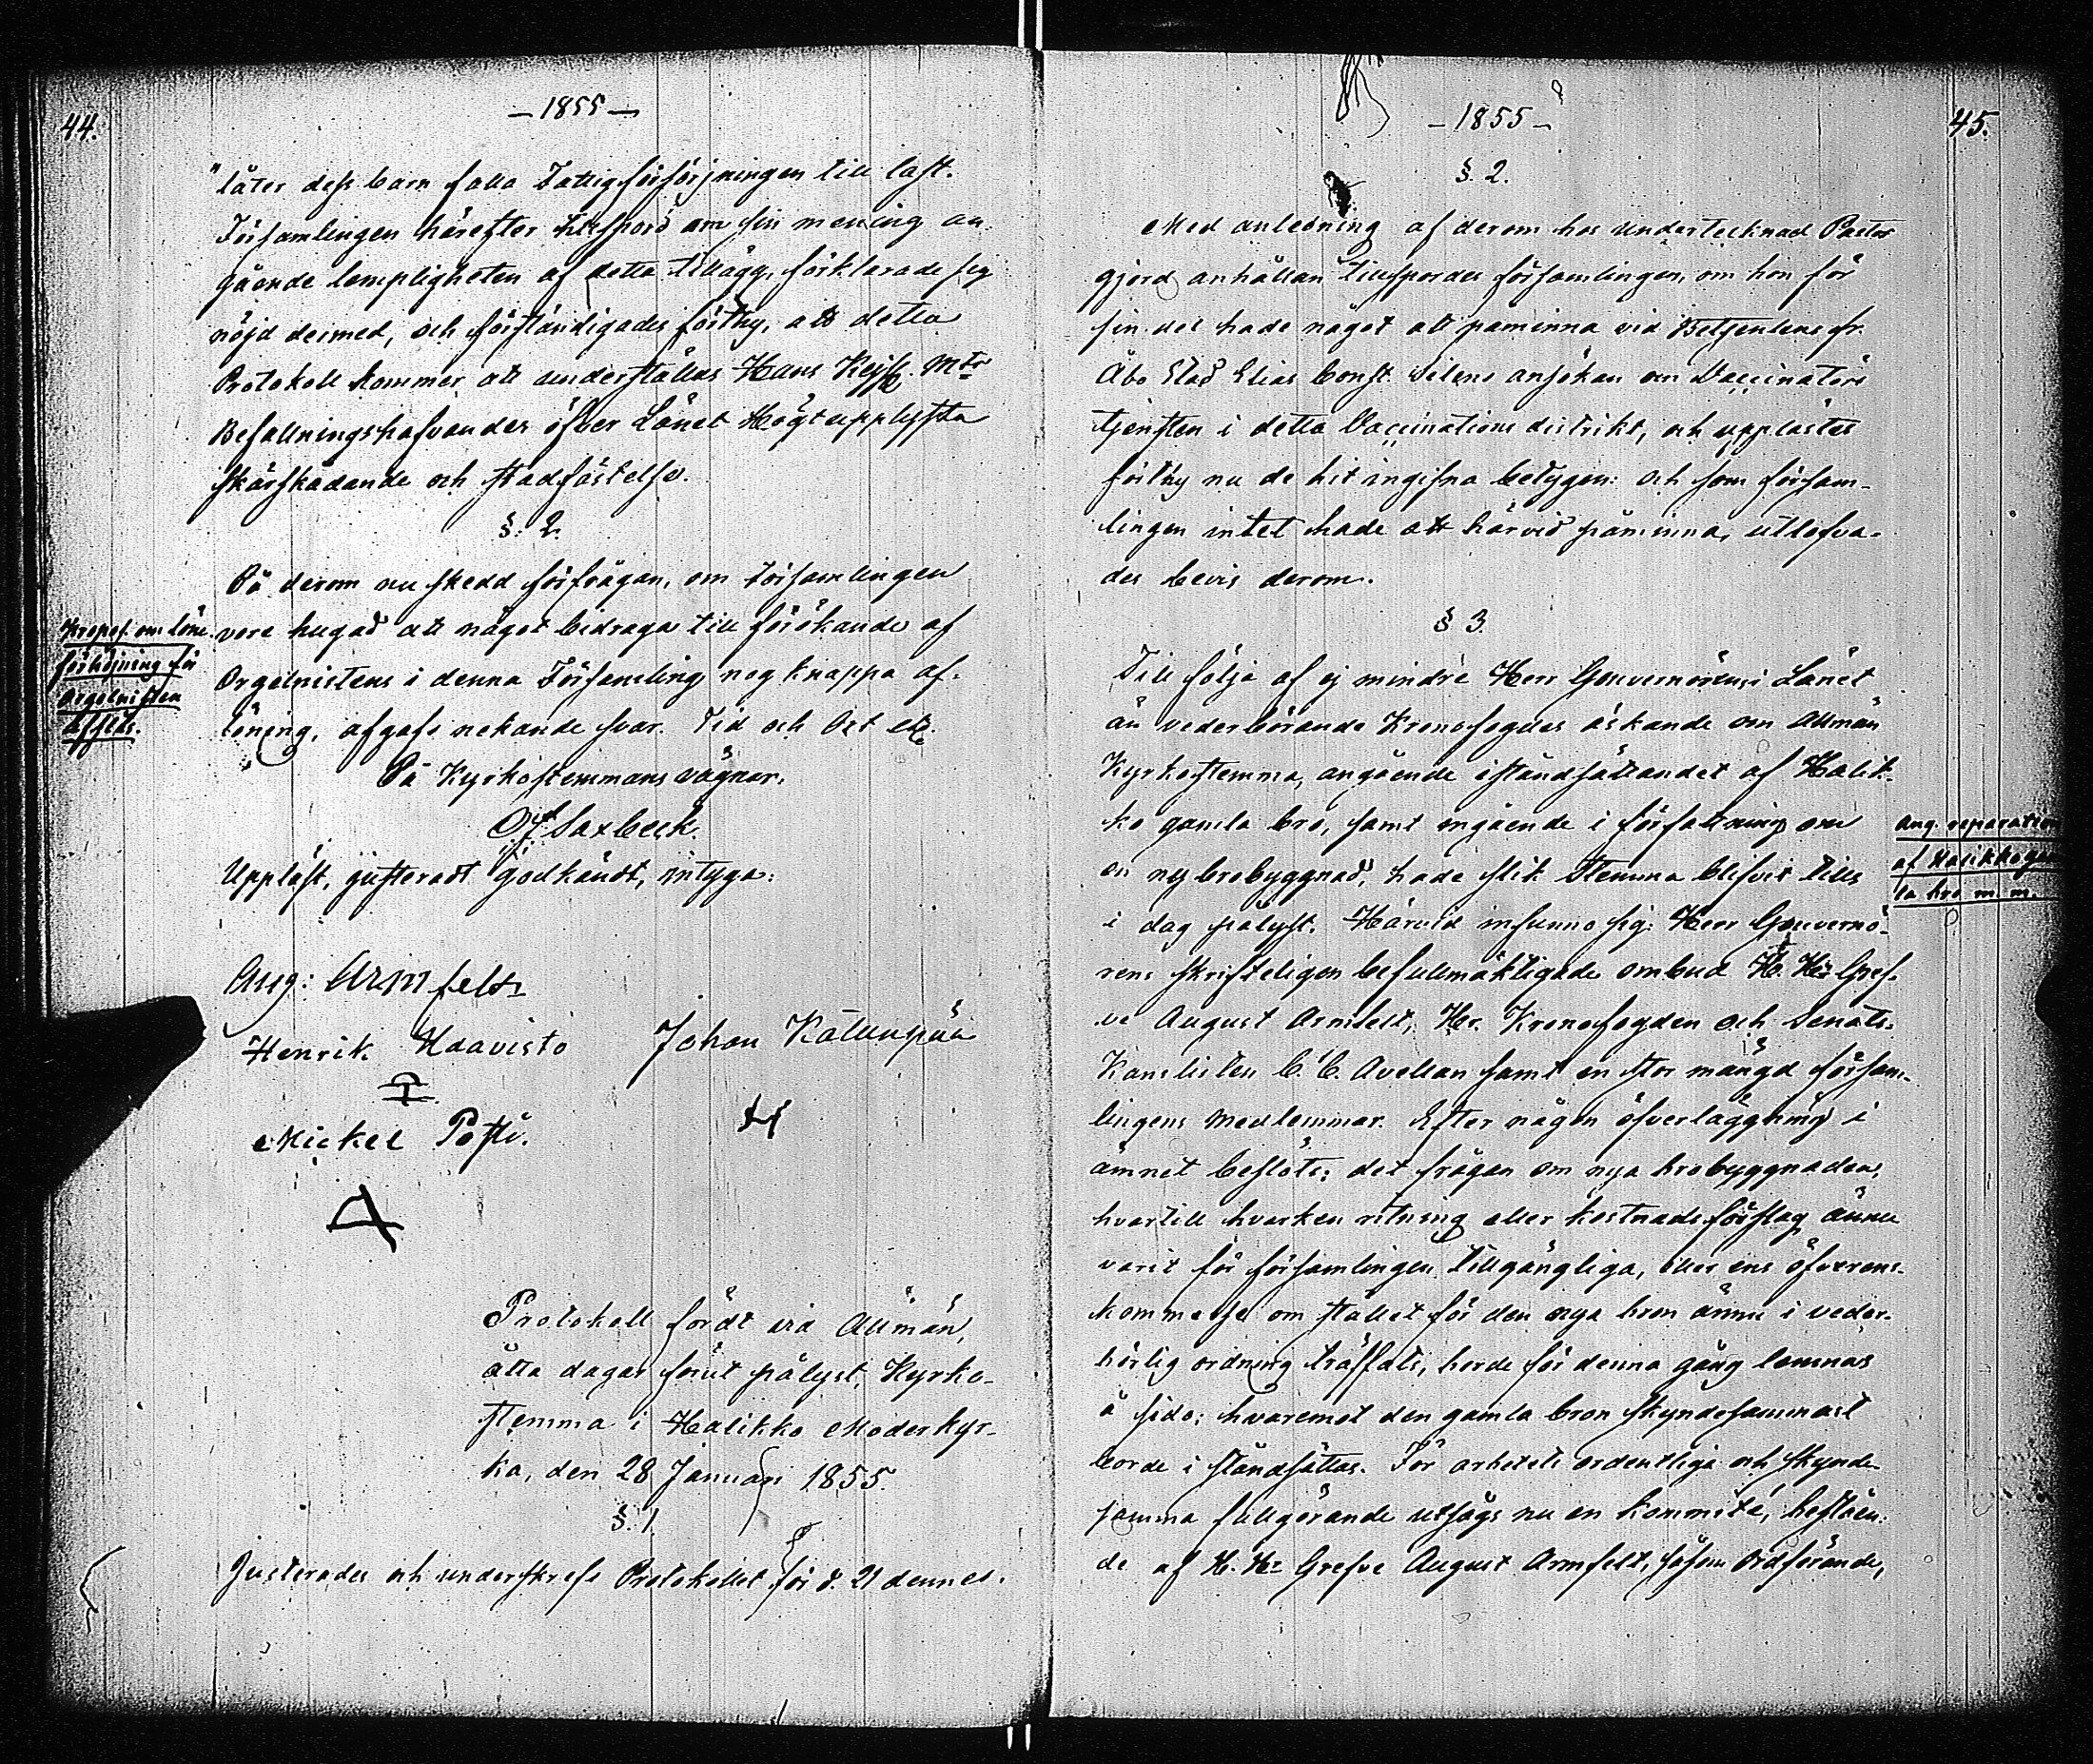 44.
- 1855 -
"låter dess barn falla Fattigförsörjningen till last.
Församlingen härefter tillspord om sin mening an-
gående lempligheten af detta tillägg, förklarade sig
nöjd dermed, och förständigades förthy, att detta
Protokoll kommer att underställas Hans Kejs. Mts
Befallningshafvandes öfver Länet Högtupplysta
skärskådande och stadfästelse.
§. 2.
På derom nu skedd förfrågan, om Församlingen
vore hugad att något bidraga till förökande af
Orgelnistens i denna Församling nog knappa af-
löning, afgafs nekande svar. Tid och Ort etc.
Propos. om löne-
förhöjning för
Orgelnisten
afslås.
På Kyrkostemmans vägnar.
Of Saxbeck.
Uppläst, justeradt godkändt, intyga:
Aug: Armfelt
Henrik Haavisto Johan
Mickel
Protokoll fördt vid Allmän,
åtta dagar förut pålyst, Kyrko-
stemma i Halikko Moderkyr-
ka, den 28 Januari 1855.
§. 1
Justerades och underskrefs Protokollet för d. 21 dennes.
45.
- 1855 -
§. 2.
Med anledning af derom hos undertecknad Pastor
gjord anhållan tillspordes församlingen, om hon för
sin del hade något att påminna vid Betjentens fr.
Åbo Stad Elias Const. Silens ansökan om Vaccinatörs
tjensten i detta Vaccinations distrikt, och upplästes
förthy nu de hit ingifna betygen: och som försam-
lingen intet hade att härvid påminna, utlofva-
des bevis derom.
§ 3.
Till följe af ej mindre Herr Gouvernörens i Länet
än vederbörande Kronofogdes äskande om allmän
Kyrkostemma, angående iståndsättandet af Halik-
ko gamla bro, samt ingående i författning om
en ny brobyggnad, hade slik Stemma blifvit tills
i dag pålyst. Härvid infunno sig: Herr Gouvernö-
rens skrifteligen befullmäktigade ombud H. Hr Gref-
ve August Armfelt, Hr. Kronofogden och Senats-
Kanslisten C. C. Avellan samt en stor mängd försam-
lingens medlemmar. Efter någon öfverläggning i
ämnet beslöts; det frågan om nya brobyggnaden,
hvartill hvarken ritning eller kostnadsförslag ännu
varit för församlingen tillgängliga, eller ens öfverens-
kommelse om stället för den nya bron ännu i veder-
börlig ordning träffats, borde för denna gång lemnas
å sido; hvaremot den gamla bron skyndesammast
borde i ståndsättas. För arbetets ordentliga och skynde-
samma fullgörande utsågs nu en kommité, bestäen-
de af H. Hr Grefve August Armfelt, såsom Ordförande,
Ang. reparation
af Halikko gam-
la bro m. m.